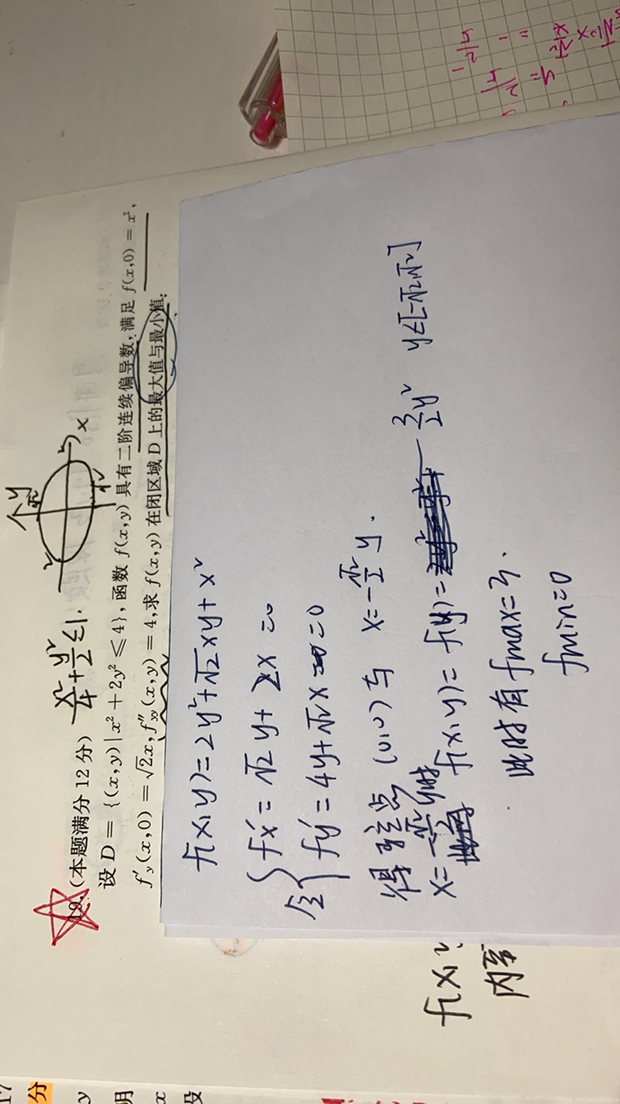 19. (本题满分 12 分) x²/4 + y²/2 ≤ 1.
设 D = {(x,y) | x² + 2y² ≤ 4}, 函数 f(x,y) 具有二阶连续偏导数, 满足 f(x,0) = x²,
f′y(x,0) = √2x, f″yy(x,y) = 4, 求 f(x,y) 在闭区域 D 上的最大值与最小值.
y
x
f(x,y) = 2y² + √2xy + x²
令 { fx′ = √2y + 2x = 0
fy′ = 4y + √2x = 0
得驻点 (0,0) 与 x = -√2/2 y.
x = -√2/2 y时 f(x,y) = f(y) = 3/2 y² y∈[-√2,√2]
此时有 fmax = 3.
fmin = 0
f(x,y
内
分
y
明
x
设